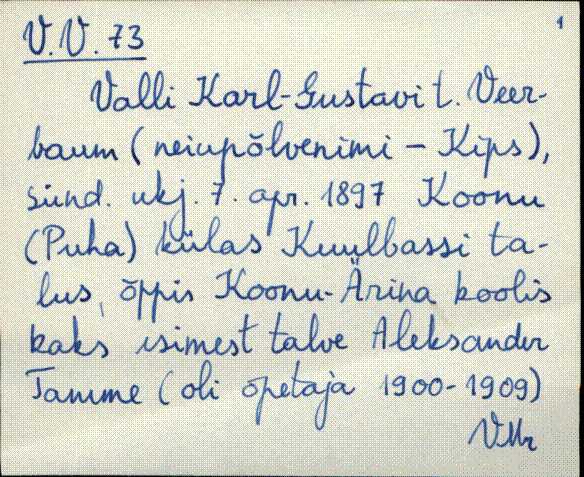 1
V.V. 73
Valli Karl-Gustavi t. Veer-
baum (neiupõlvenimi - Kips),
sünd. ukj. 7. apr. 1897 Koonu
(Puha) külas Kuulbassi ta-
lus, õppis Koonu-Ärina koolis
kaks esimest talve Aleksander
Tamme (oli õpetaja 1900-1909)